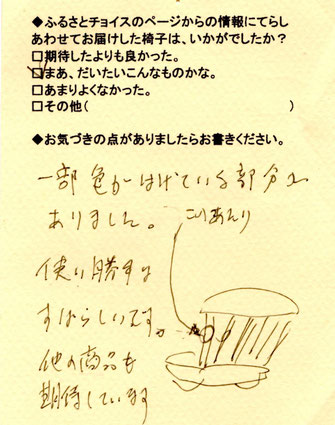 ◆ふるさとチョイスのページからの情報にてらし
あわせてお届けした椅子は、いかがでしたか？
□期待したよりも良かった。
☑まあ、だいたいこんなものかな。
□あまりよくなかった。
□その他(　　　　　　　　　　　　　　)
◆お気づきの点がありましたらお書きください。
一部色がはげている部分が
ありました。
使い勝手は
すばらしいです。
他の商品も
期待しています